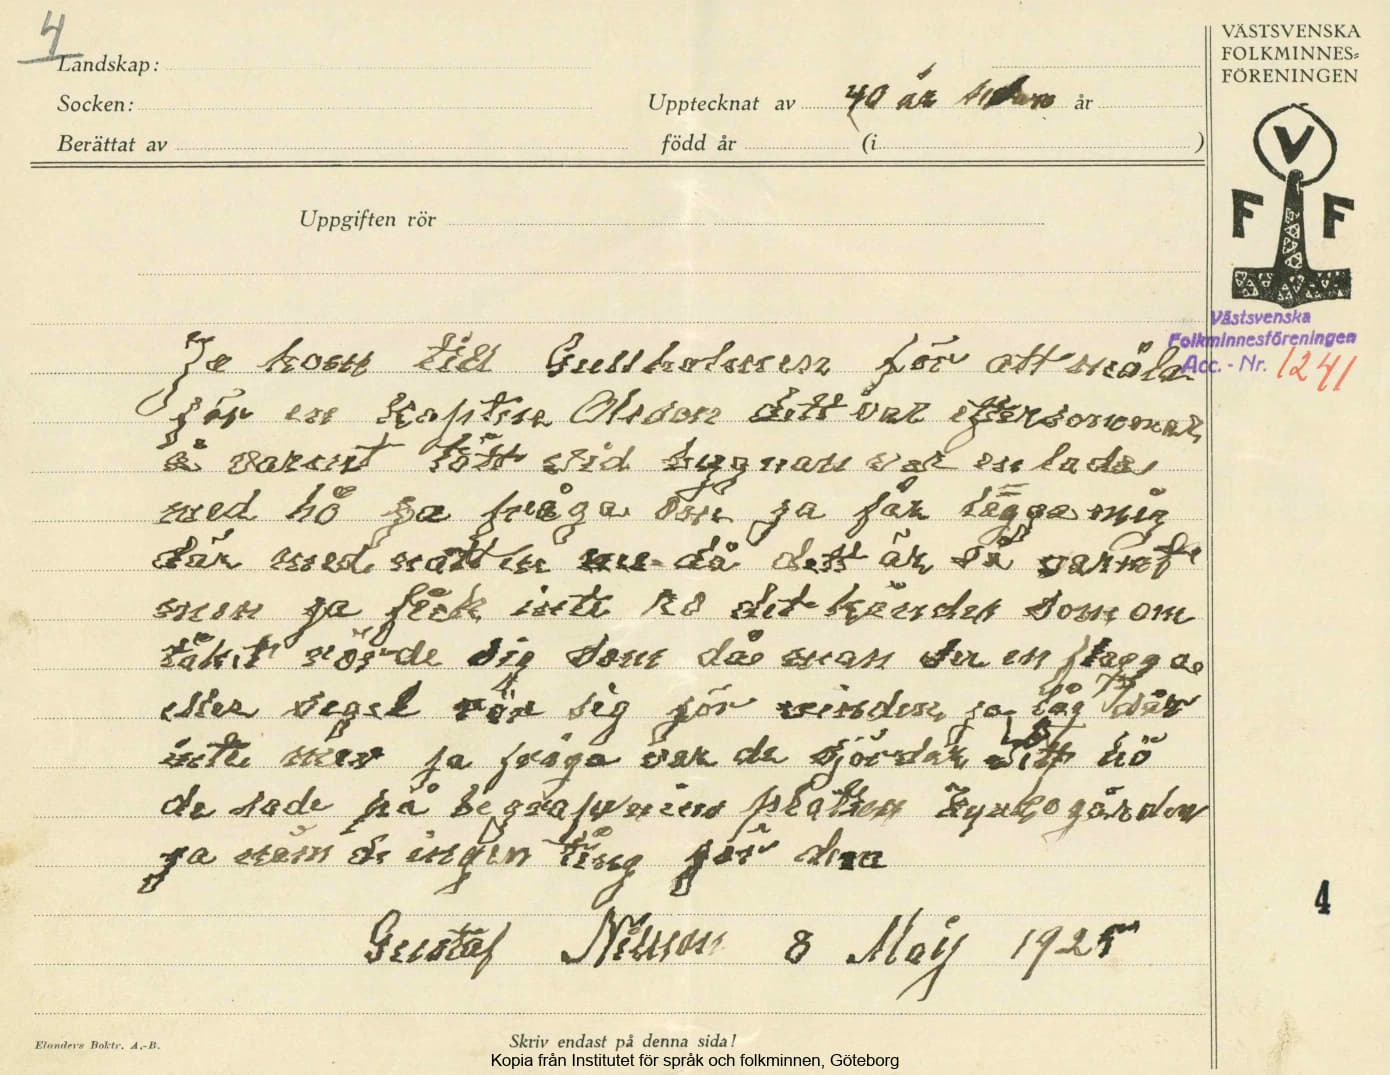 4
VÄSTSVENSKA
FOLKMINNES=
FÖRENINGEN
Landskap:
Socken:
Upptecknat av 40 år sedan år
Berättat av
född år
(i )
V
F F
Uppgiften rör
Västsvenska
Folkminnesföreningen
Acc. - Nr. 1241
Ja kom till Gullholmen för att måla
för en Kapten Olsson dett var eftersommar
å varmt tätt vid bygnan var en lada
med hö ja fråga om ja får lägga mig
där med natten nu då dett är så varmt
men ja fick inte ro det kändes som om
täket rörde sig som då man ser en flagga
eller segel rör sig för vinden ja låg där
inte mer ja fråga var de sjördar sitt hö
de sade på begrafnins platsen Kyrkogården
ja näm de ingen ting för dem
Gustaf Nilsson 8 Maij 1925
4
Elanders Boktr. A.-B.
Skriv endast på denna sida!
Kopia från Institutet för språk och folkminnen, Göteborg